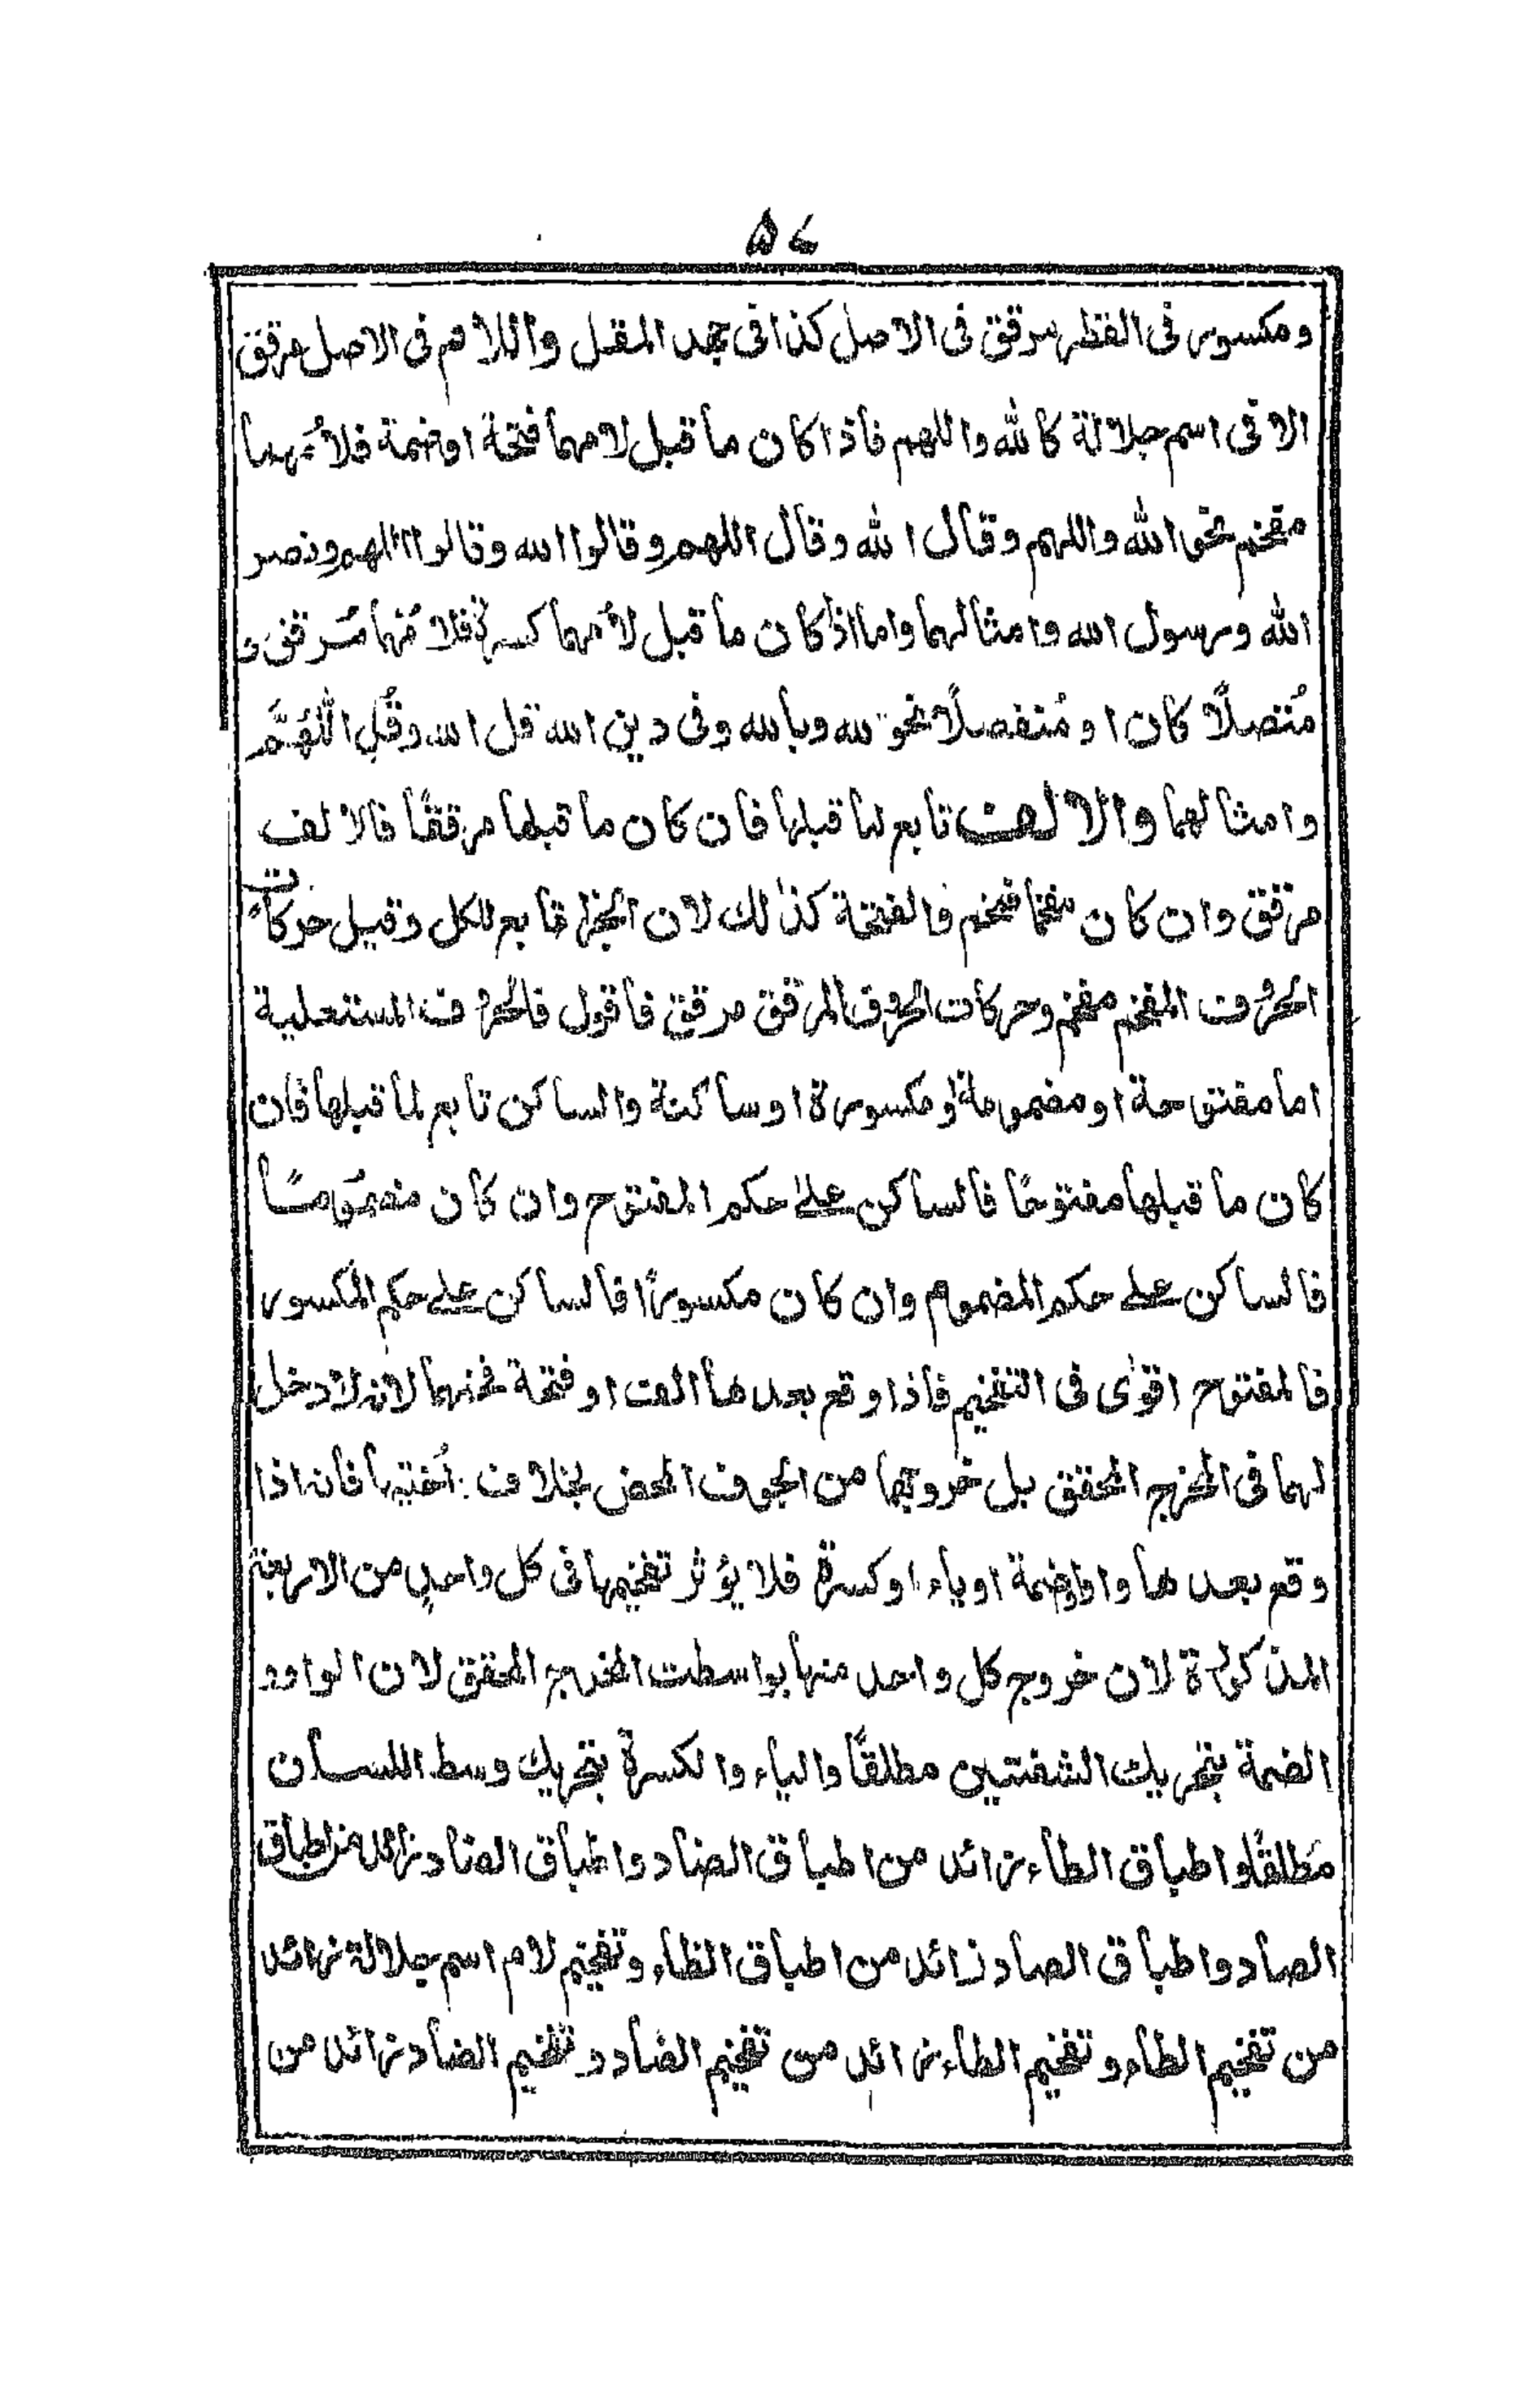 ۵۷
ومكسور فى القطر مرقق فى الاصل كذا فى جهد المقل واللام فى الاصل مرقق
الا فى اسم جلالة كالله واللهم فاذا كان ما قبل لامهما فتحة اوضمة فلامهما
مفخم نحو الله واللهم وقال الله وقال اللهم وقالوا الله وقالوا اللهم ونصر
الله ورسول الله وامثالهما واما اذا كان ما قبل لامهما كسرة فلامهما مرقق
مُتصلًا كان او مُنفصلًا نحو لله وبالله وفى دين الله قل الله وقُلِ اللّٰهُمَّ
وامثالهما والالف تابع لما قبلها فان كان ما قبلها مرققًا فالالف
مرقق وان كان مفخما فمفخم والفتحة كذٰلك لان الجزء تابع للكل وقيل حركات
الحروف المفخم مفخم وحركات الحروف المرقق مرقق فاقول فالحروف المستعلية
اما مفتوحة او مضمومة او مكسورة او ساكنة والساكن تابع لما قبلها فان
كان ما قبلها مفتوحًا فالساكن علىٰ حكم المفتوح وان كان مضمُومًا
فالساكن على حكم المضموم وان كان مكسورًا فالساكن على حكم المكسور
فالمفتوح اقوٰى فى التفخيم فاذا وقع بعدها الف او فتحة فخنهما لانه لا دخل
لهما فى المخرج المحقق بل خروجهما من الجوف المحض بخلاف اُختيها فانه اذا
وقع بعدها واو اوضمة او ياء او كسرة فلا يؤثر تفخيمها فى كل واحدٍ من الاربعة
المذكورة لان خروج كل واحد منها بواسطت المخرج المحقق لان الواو و
الضمة بتحريك الشفتين مطلقًا والياء والكسرة بتحريك وسط اللسان
مَطلقًا واطباق الطاء زائد من اطباق الضاد واطباق الضاد زائد من اطباق
الصاد واطباق الصاد زائد من اطباق الظاء وتفخيم لام اسم جلالة زائد
من تفخيم الطاء وتفخيم الطاء زائد من تفخيم الضاد وتفخيم الضاد زائد من